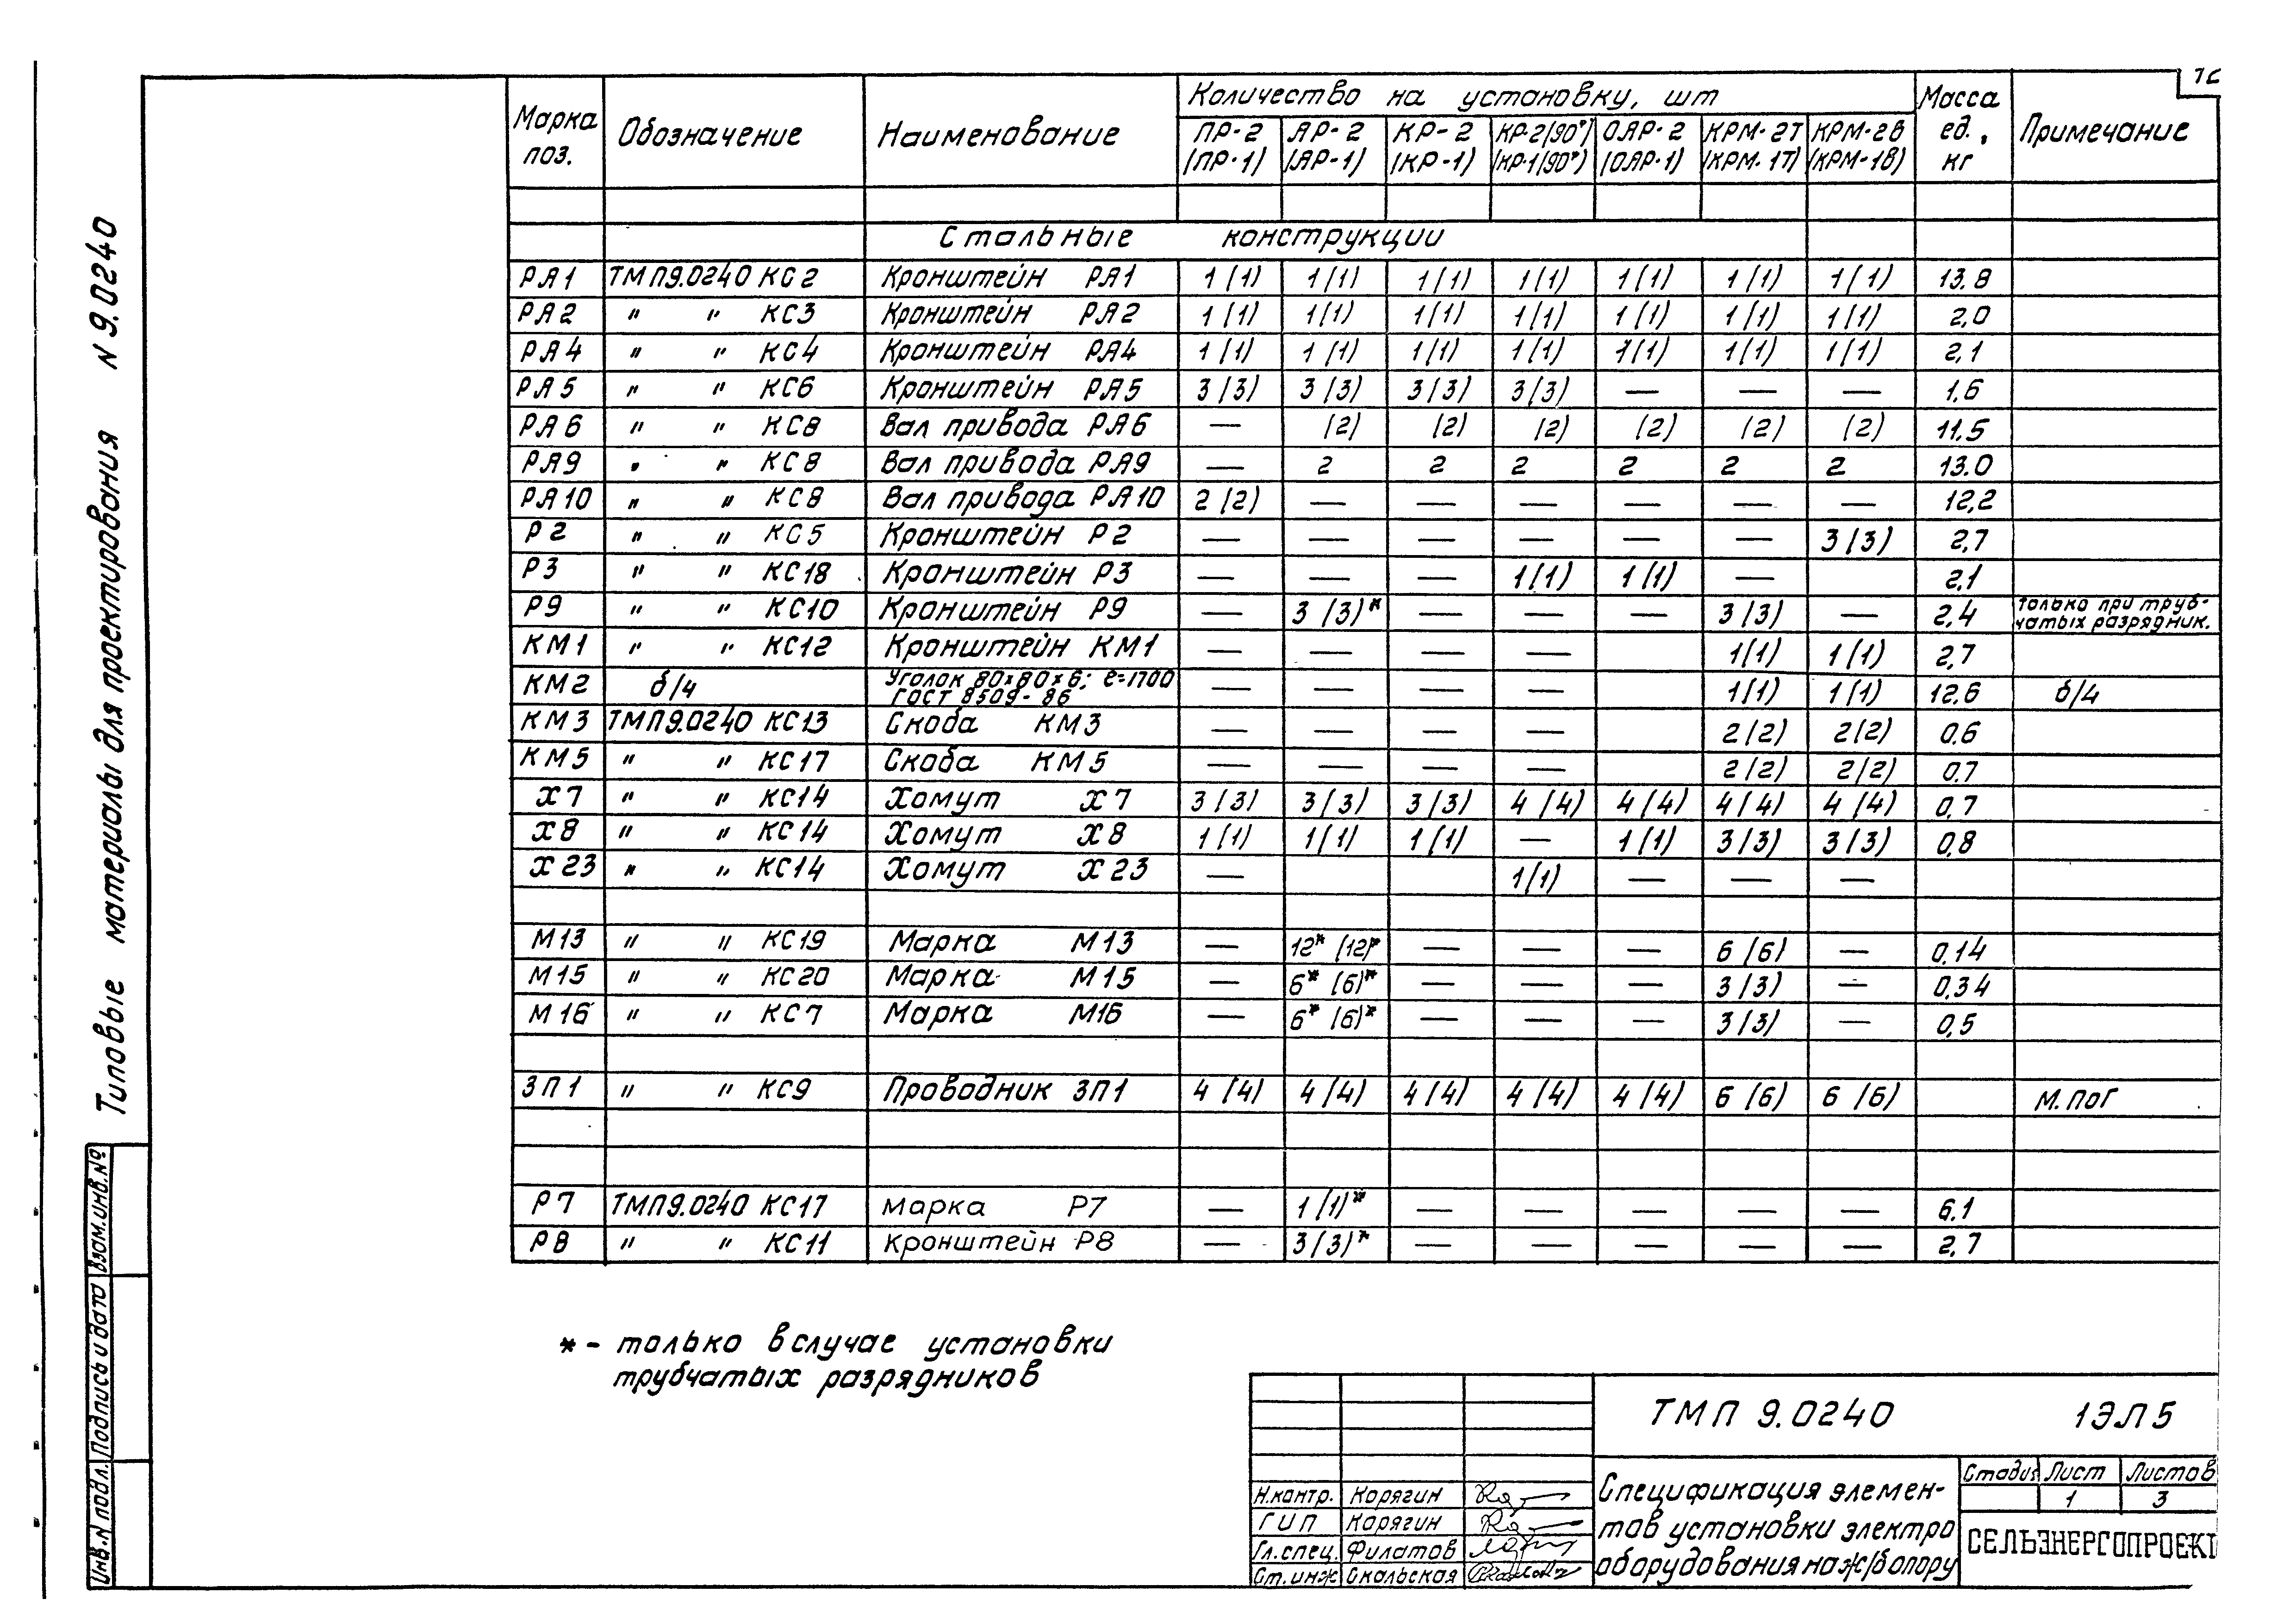 Типовые материалы для проектирования N 9.0240
Марка поз. Обозначение Наименование Количество на установку, шт Масса ед., кг Примечание
ПР-2 (ПР-1) ЯР-2 (ЯР-1) КР-2 (КР-1) КР-2(90°) (КР-1(90°) ОЯР-2 (ОЯР-1) КРМ-2Т (КРМ-1Т) КРМ-2В (КРМ-1В)
Стальные конструкции
РЯ1 ТМП9.0240 КС2 Кронштейн РЯ1 1(1) 1(1) 1(1) 1(1) 1(1) 1(1) 1(1) 13.8
РЯ2 " " КС3 Кронштейн РЯ2 1(1) 1(1) 1(1) 1(1) 1(1) 1(1) 1(1) 2,0
РЯ4 " " КС4 Кронштейн РЯ4 1(1) 1(1) 1(1) 1(1) 1(1) 1(1) 1(1) 2,1
РЯ5 " " КС6 Кронштейн РЯ5 3(3) 3(3) 3(3) 3(3) — — — 1,6
РЯ6 " " КС8 Вал привода РЯ6 — (2) (2) (2) (2) (2) (2) 11.5
РЯ9 " " КС8 Вал привода РЯ9 — 2 2 2 2 2 2 13.0
РЯ10 " " КС8 Вал привода РЯ10 2(2) — — — — — — 12,2
Р2 " " КС5 Кронштейн Р2 — — — — — — 3(3) 2,7
Р3 " " КС18 Кронштейн Р3 — — — 1(1) 1(1) — 2,1
Р9 " " КС10 Кронштейн Р9 — 3(3)* — — — 3(3) — 2,4 только при трубчатых разрядник.
КМ1 " " КС12 Кронштейн КМ1 — — — — 1(1) 1(1) 2,7
КМ2 б/ч Уголок 80×80×6; ℓ=1700 ГОСТ 8509-86 — — — — 1(1) 1(1) 12.6 б/ч
КМ3 ТМП9.0240 КС13 Скоба КМ3 — — — — 2(2) 2(2) 0.6
КМ5 " " КС17 Скоба КМ5 — — — — 2(2) 2(2) 0.7
Х7 " " КС14 Хомут Х7 3(3) 3(3) 3(3) 4(4) 4(4) 4(4) 4(4) 0,7
Х8 " " КС14 Хомут Х8 1(1) 1(1) 1(1) — 1(1) 3(3) 3(3) 0,8
Х23 " " КС14 Хомут Х23 — 1(1) — — —
М13 " " КС19 Марка М13 — 12* (12)* — — — 6(6) — 0,14
М15 " " КС20 Марка М15 — 6* (6)* — — — 3(3) — 0,34
М16 " " КС7 Марка М16 — 6* (6)* — — — 3(3) — 0,5
ЗП1 " " КС9 Проводник ЗП1 4(4) 4(4) 4(4) 4(4) 4(4) 6(6) 6(6) М.ПОГ
Р7 ТМП9.0240 КС17 Марка Р7 — 1(1)* — — — — — 6.1
Р8 " " КС11 Кронштейн Р8 — 3(3)* — — — — — 2,7
* - только в случае установки
трубчатых разрядников
ТМП 9.0240 1ЭЛ5
Спецификация элемен-
тов установки электро
оборудования на ж/б опору
Стадия Лист Листов
1 3
СЕЛЬЭНЕРГОПРОЕКТ
Н.контр. Корягин
ГИП Корягин
Гл.спец. Филатов
Ст.инж Скальская
Инв.N подл. Подпись и дата Взам.инв.№